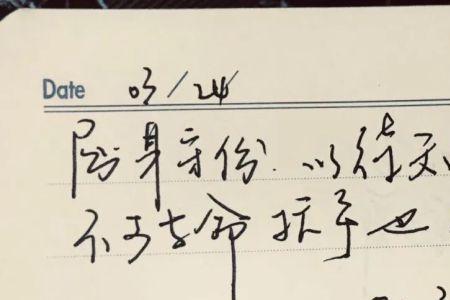 Date 03/24
屈身守份.以待天
不可与命抗争也